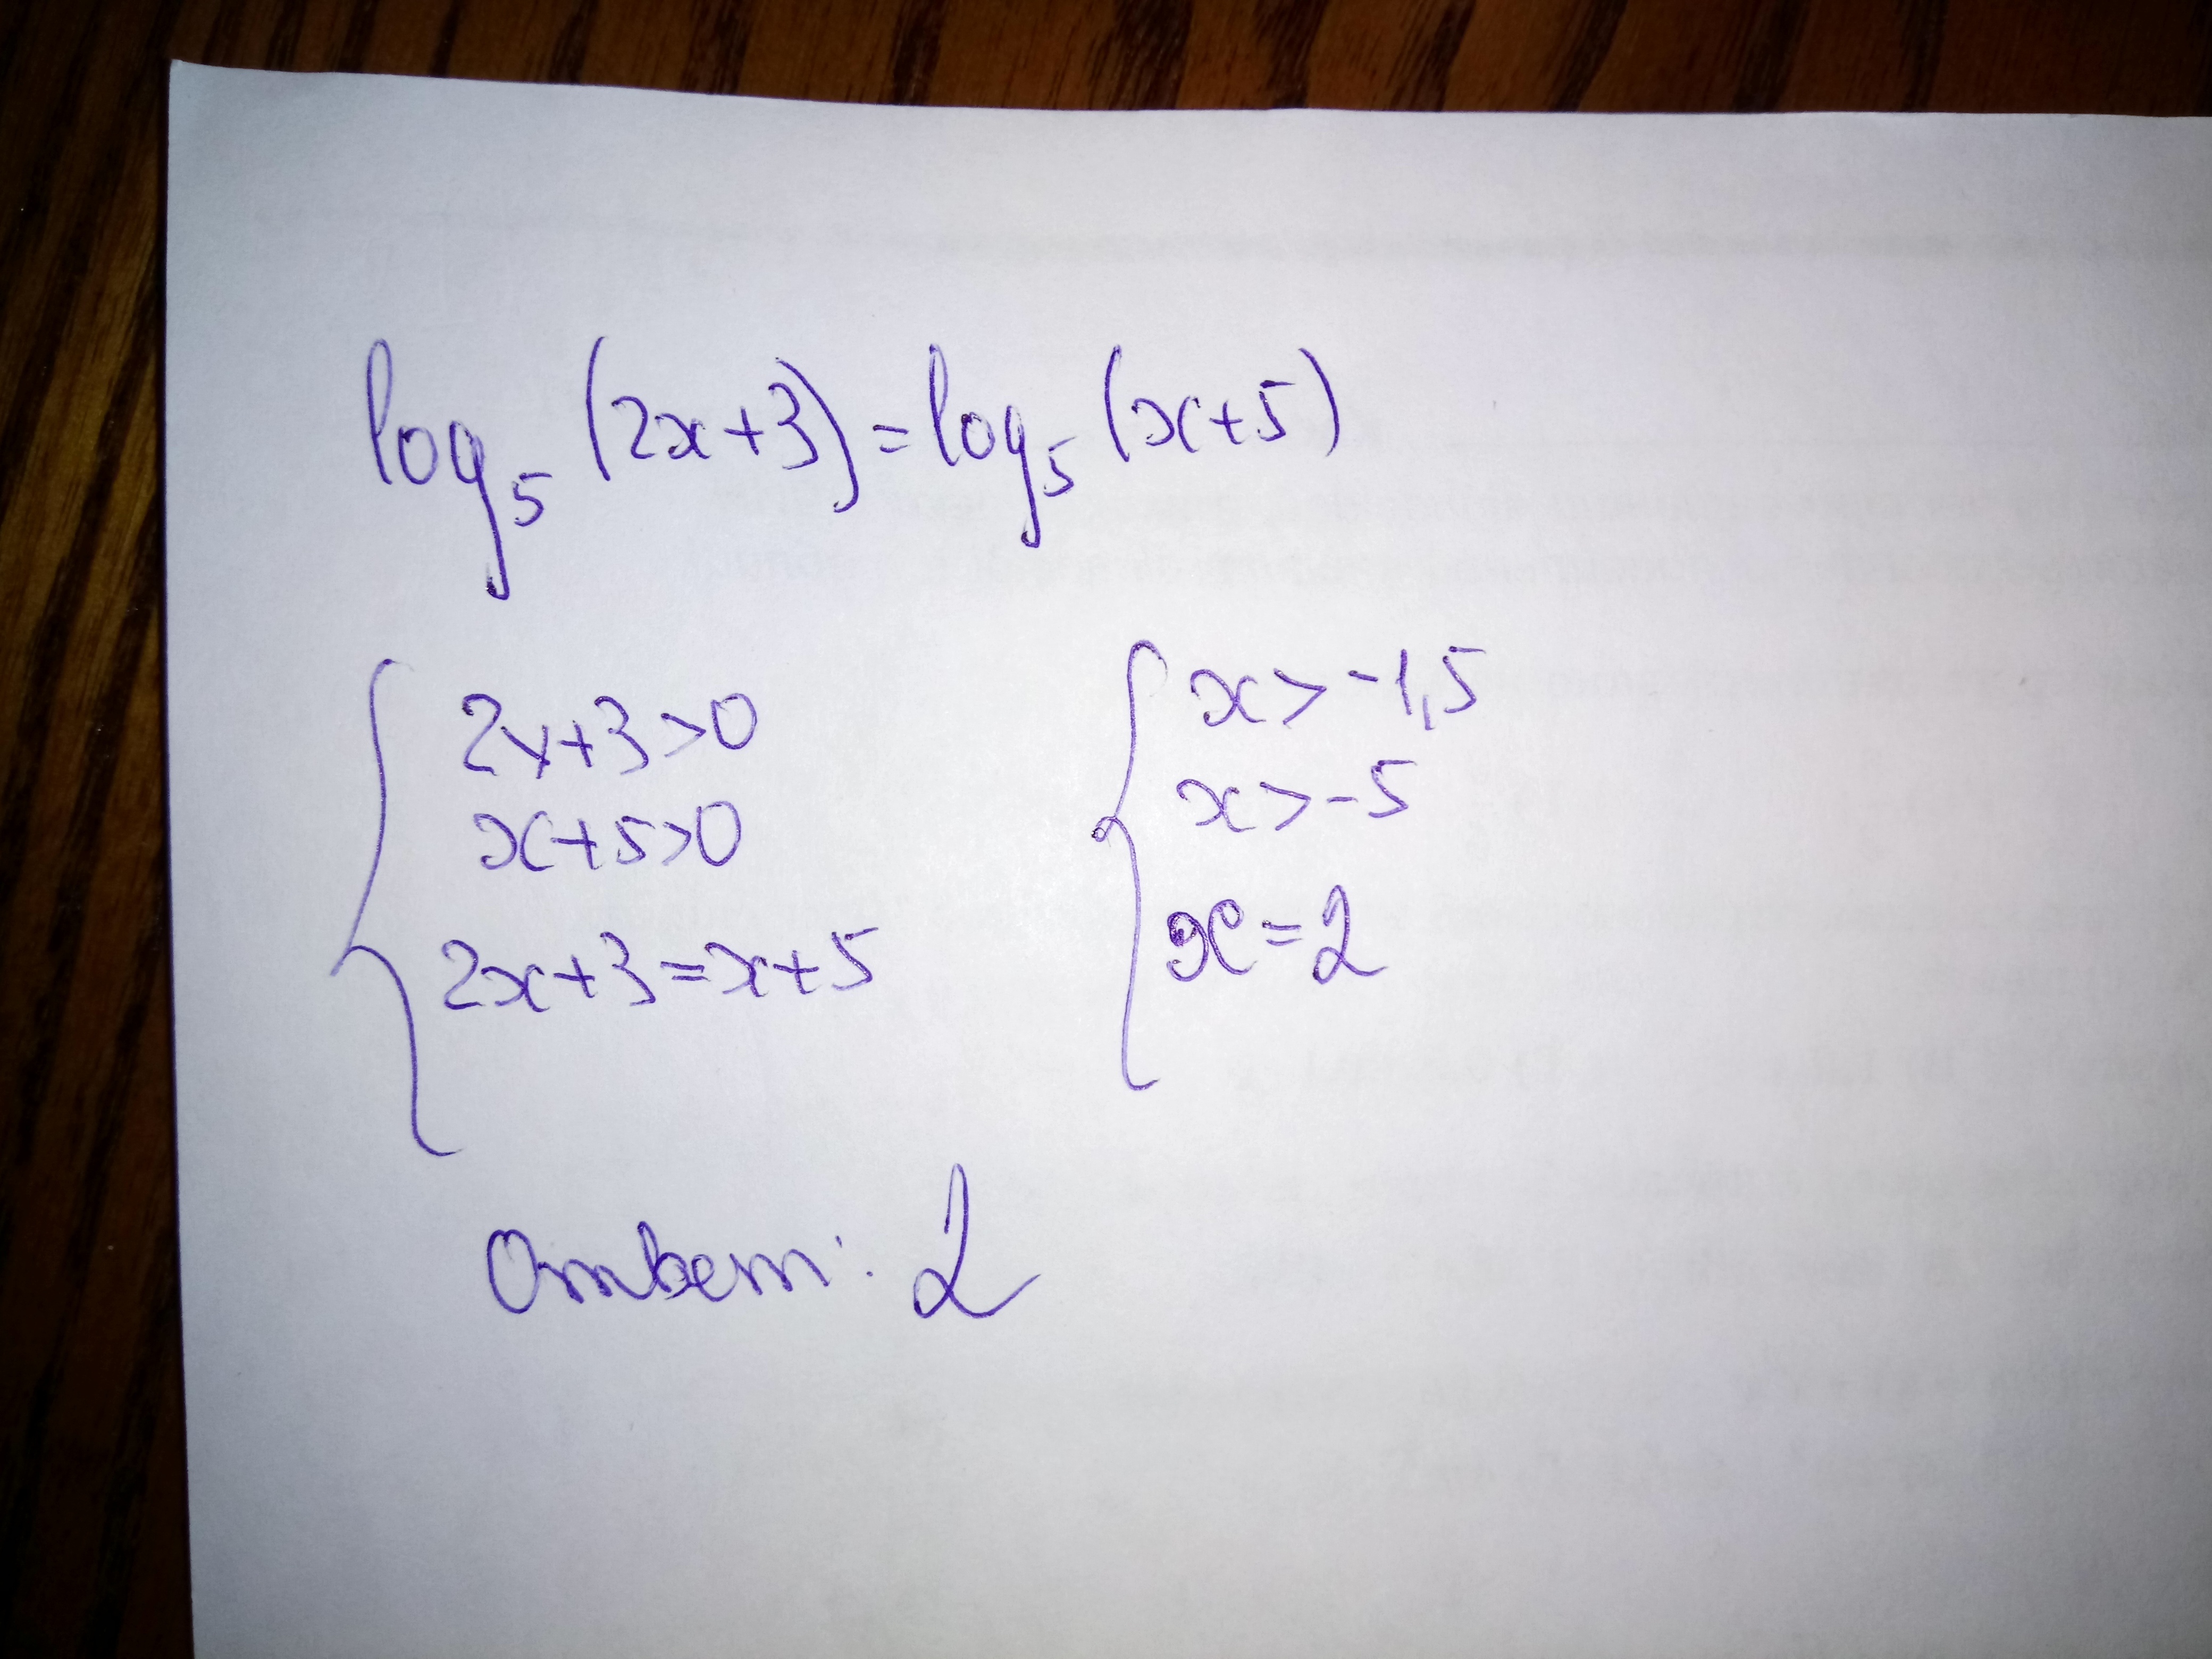 log₅ (2x+3) = log₅ (x+5)
2x+3>0
x+5>0
2x+3=x+5
x>-1,5
x>-5
x=2
Ответ: 2